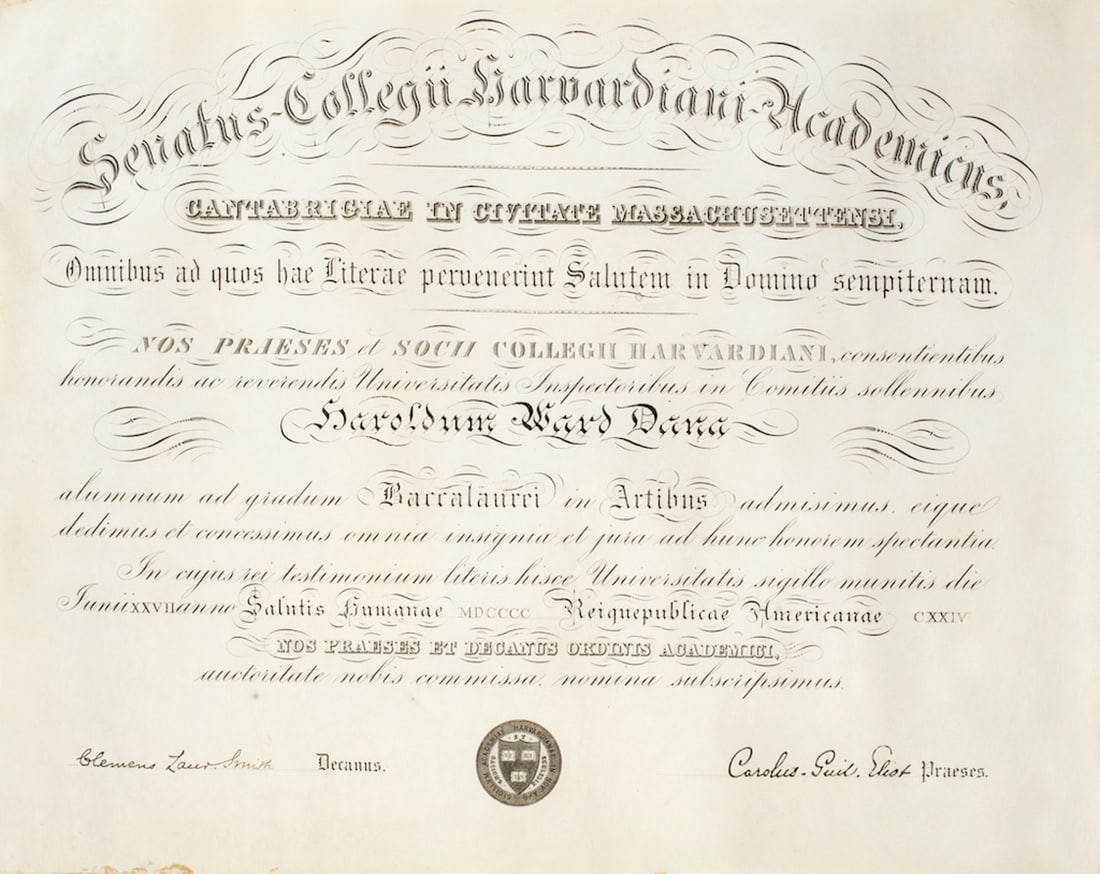 Senatus-Collegii Harvardiani-Academicus,
CANTABRIGIAE IN CIVITATE MASSACHUSETTENSI,
Omnibus ad quos hae Literae pervenerint Salutem in Domino sempiternam.
NOS PRAESES et SOCII COLLEGII HARVARDIANI, consentientibus
honorandis ac reverendis Universitatis Inspectoribus in Comitiis sollennibus
Haroldum Ward Dana
alumnum ad gradum Baccalaurei in Artibus admisimus, eique
dedimus et concessimus omnia insignia et jura ad hunc honorem spectantia.
In cujus rei testimonium literis hisce Universitatis sigillo munitis die
Junii XXVII anno Salutis Humanae MDCCCC Reique publicae Americanae CXXIV
NOS PRAESES ET DECANUS ORDINIS ACADEMICI,
auctoritate nobis commissa, nomina subscripsimus.
Clemens Laur. Smith Decanus.
Carolus-Guil. Eliot Praeses.